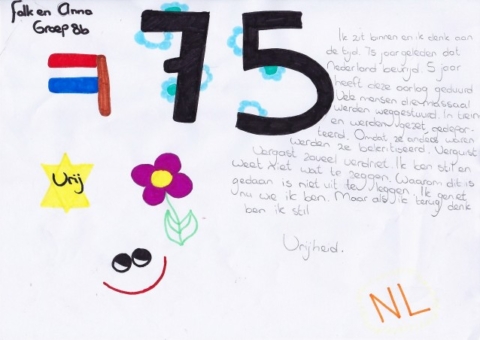 Falk en Anna
Groep 8b
75
Ik zit binnen en ik denk aan
de tijd. 75 jaar geleden dat
Nederland bevrijd. 5 jaar
heeft deze oorlog geduurd
Vele mensen die massaal
werden weggestuurd. In trein
en werden gezet, gedepor-
teerd. Omdat ze anders waren
werden ze belentiseerd. Vergast!
Vergast zoveel verdriet. Ik ben stil en
weet niet wat te zeggen. Waarom dit is
gedaan is niet uit te leggen. Ik geniet
nu wie ik ben. Maar als ik terug denk
ben ik stil
Vrijheid.
Vrij
NL